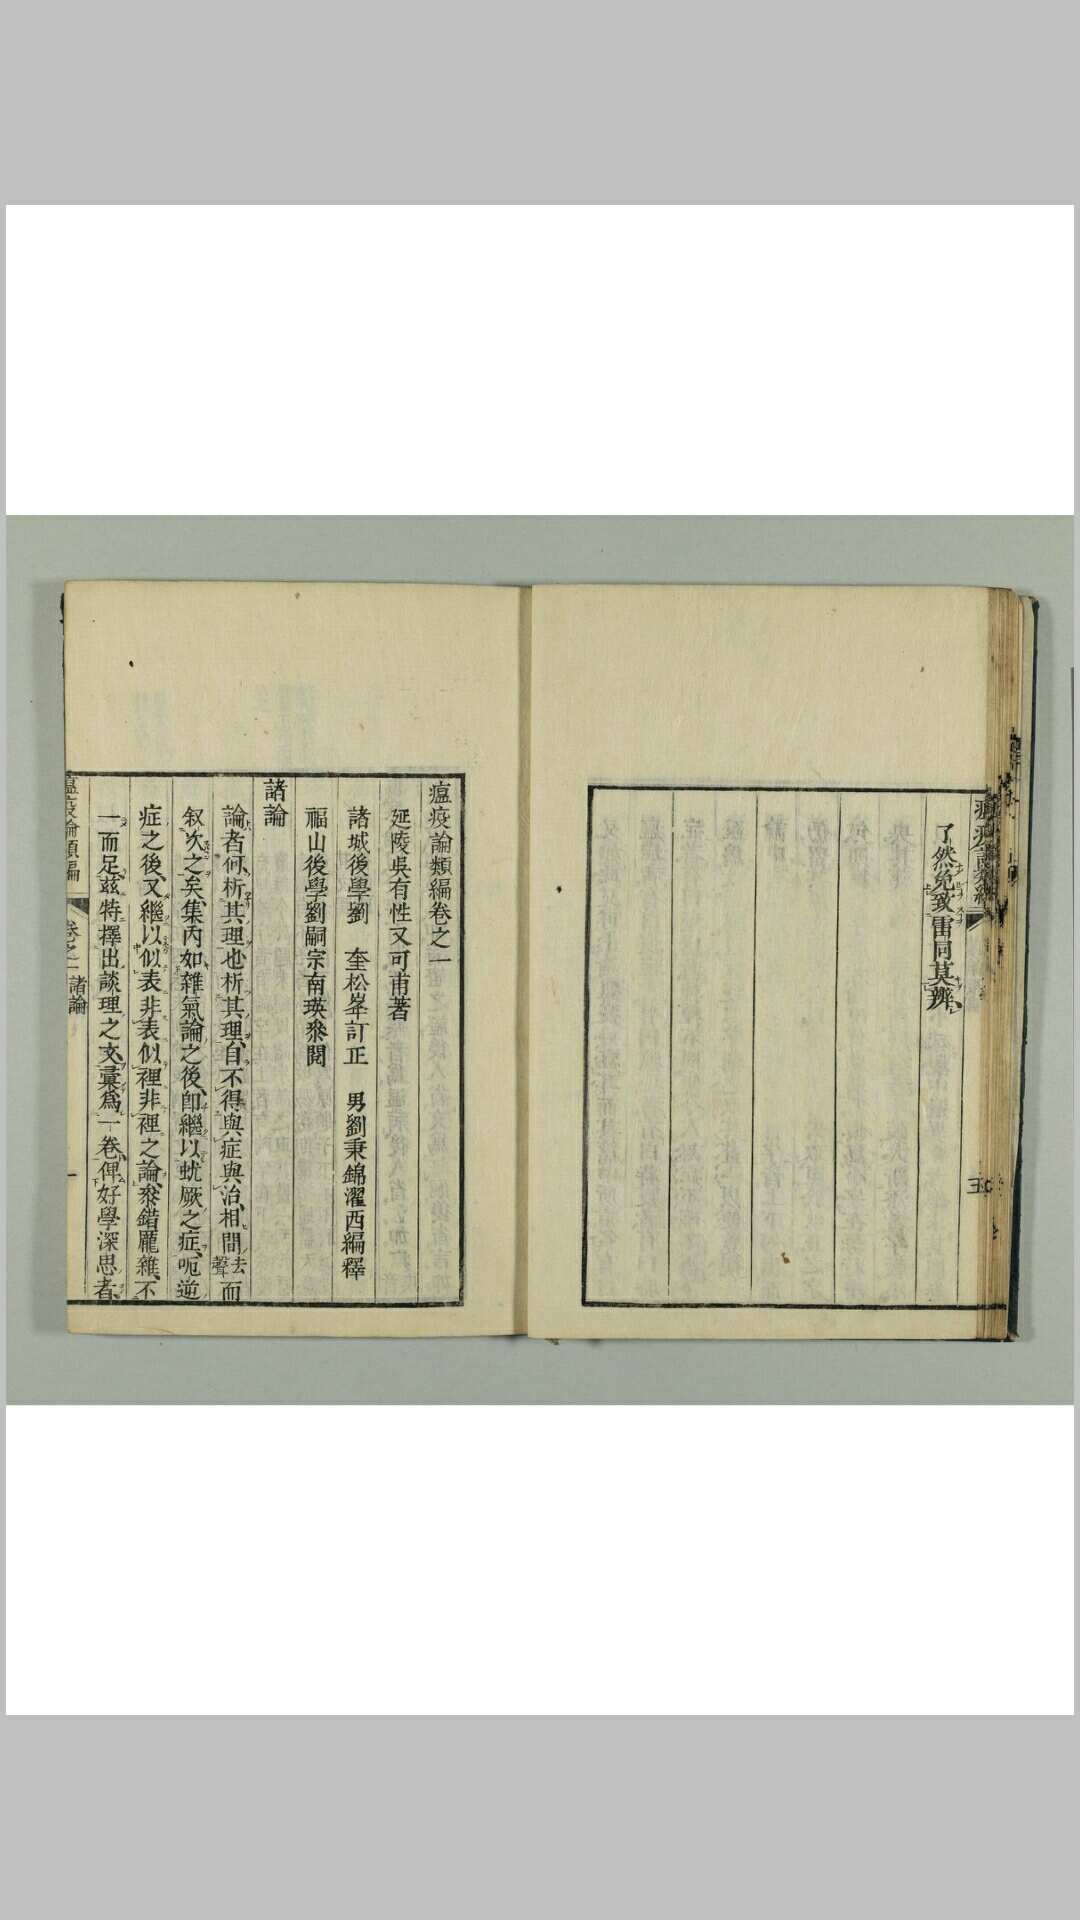 了然免致雷同莫辨
瘟疫論類編卷之一
延陵吳有性又可甫著
諸城後學劉　奎松峯訂正　男劉秉錦濯西編釋
福山後學劉嗣宗南瑛叅閱
諸論
論者何析其理也析其理自不得與症與治相間去聲而
叙次之矣集內如雜氣論之後卽繼以蚘厥之症呃逆
症之後又繼以似表非表似裡非裡之論叅錯厖雜不
一而足茲特擇出談理之文彙爲一卷俾好學深思者
瘟疫論類編　卷之一　諸論　一